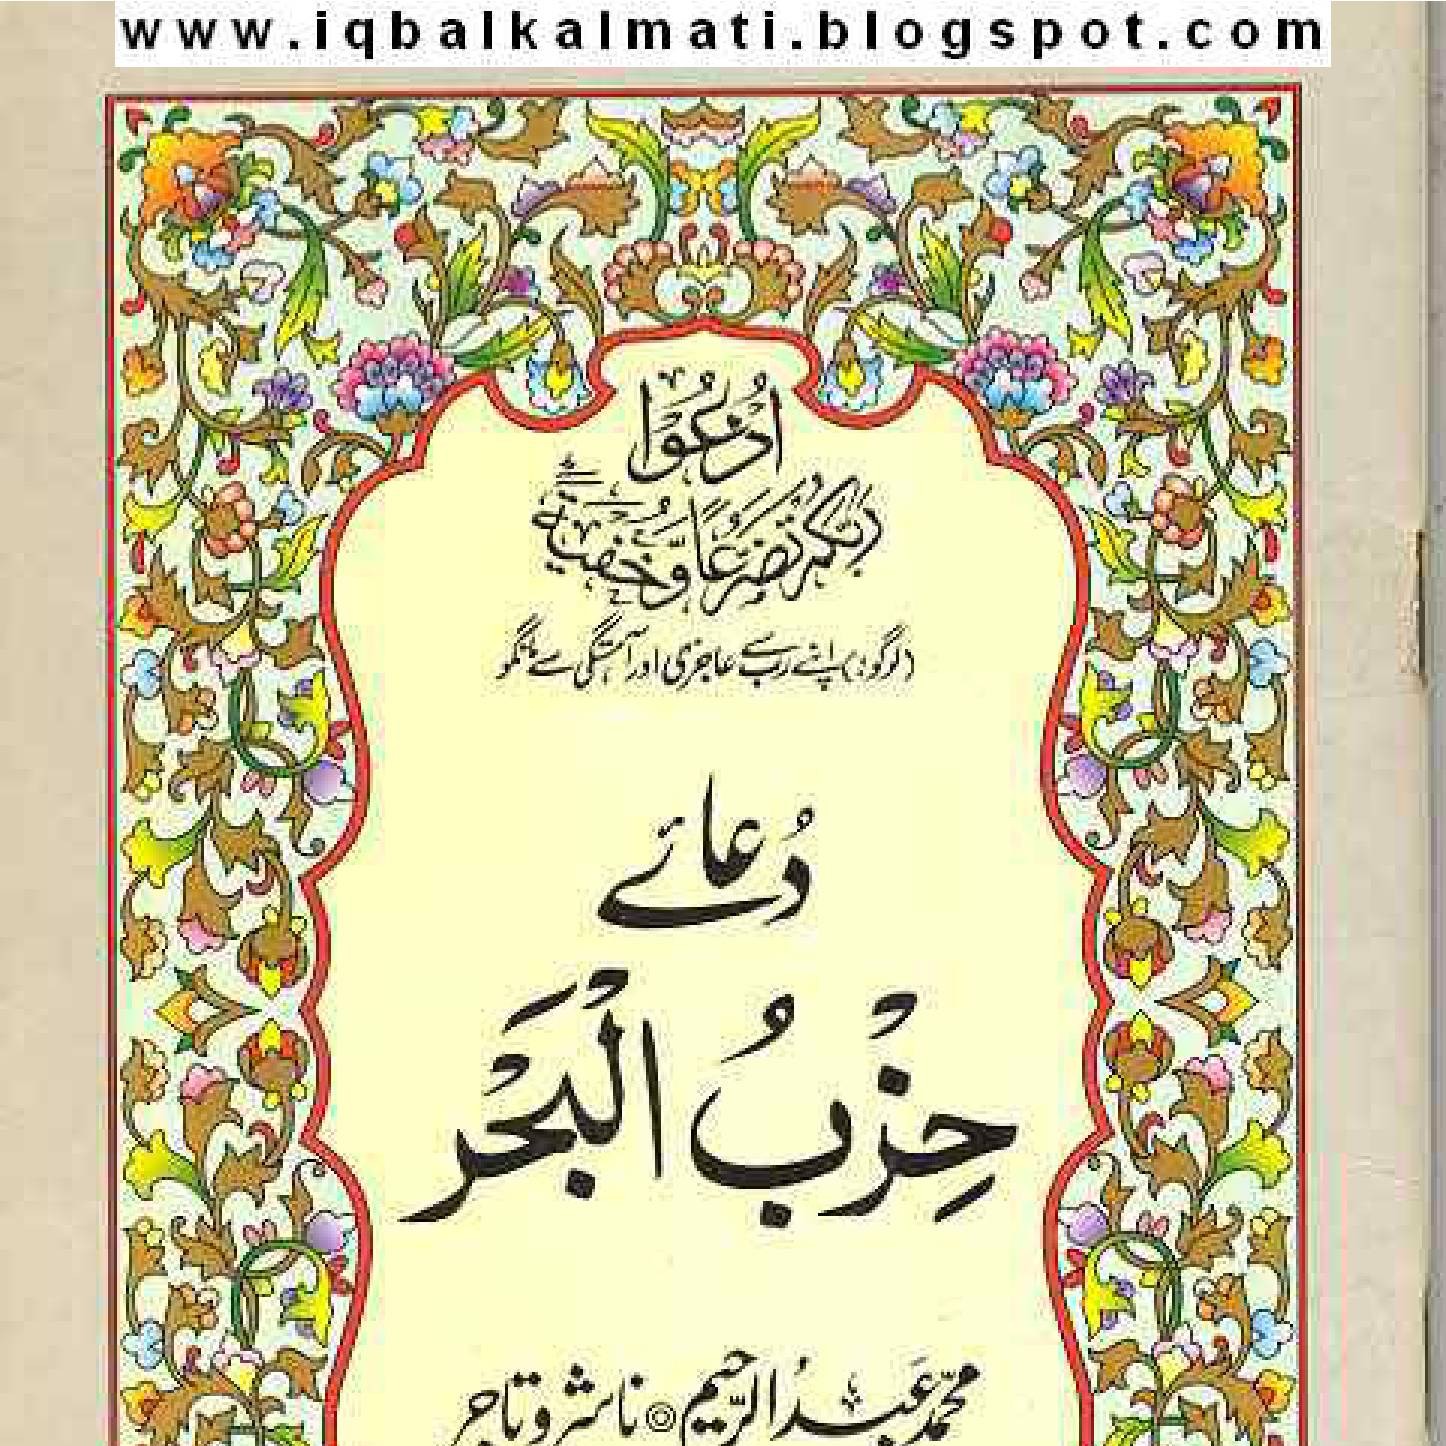 www.iqbalkalmati.blogspot.com
اُدْعُوْا
رَبَّكُمْ تَضَرُّعًا وَّخُفْيَةً ؕ
(لوگو!) اپنے رب سے عاجزی اور آہستگی سے مانگو
دُعائے
حِزْبُ الْبَحَر
محمّد عَبدُ الرَّحیم ◎ ناشر و تاجر